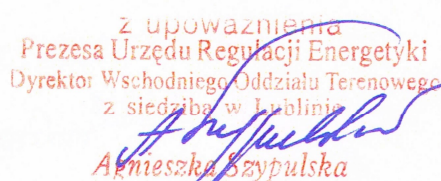 z upoważnienia
Prezesa Urzędu Regulacji Energetyki
Dyrektor Wschodniego Oddziału Terenowego
z siedzibą w Lublinie
Agnieszka Szypulska